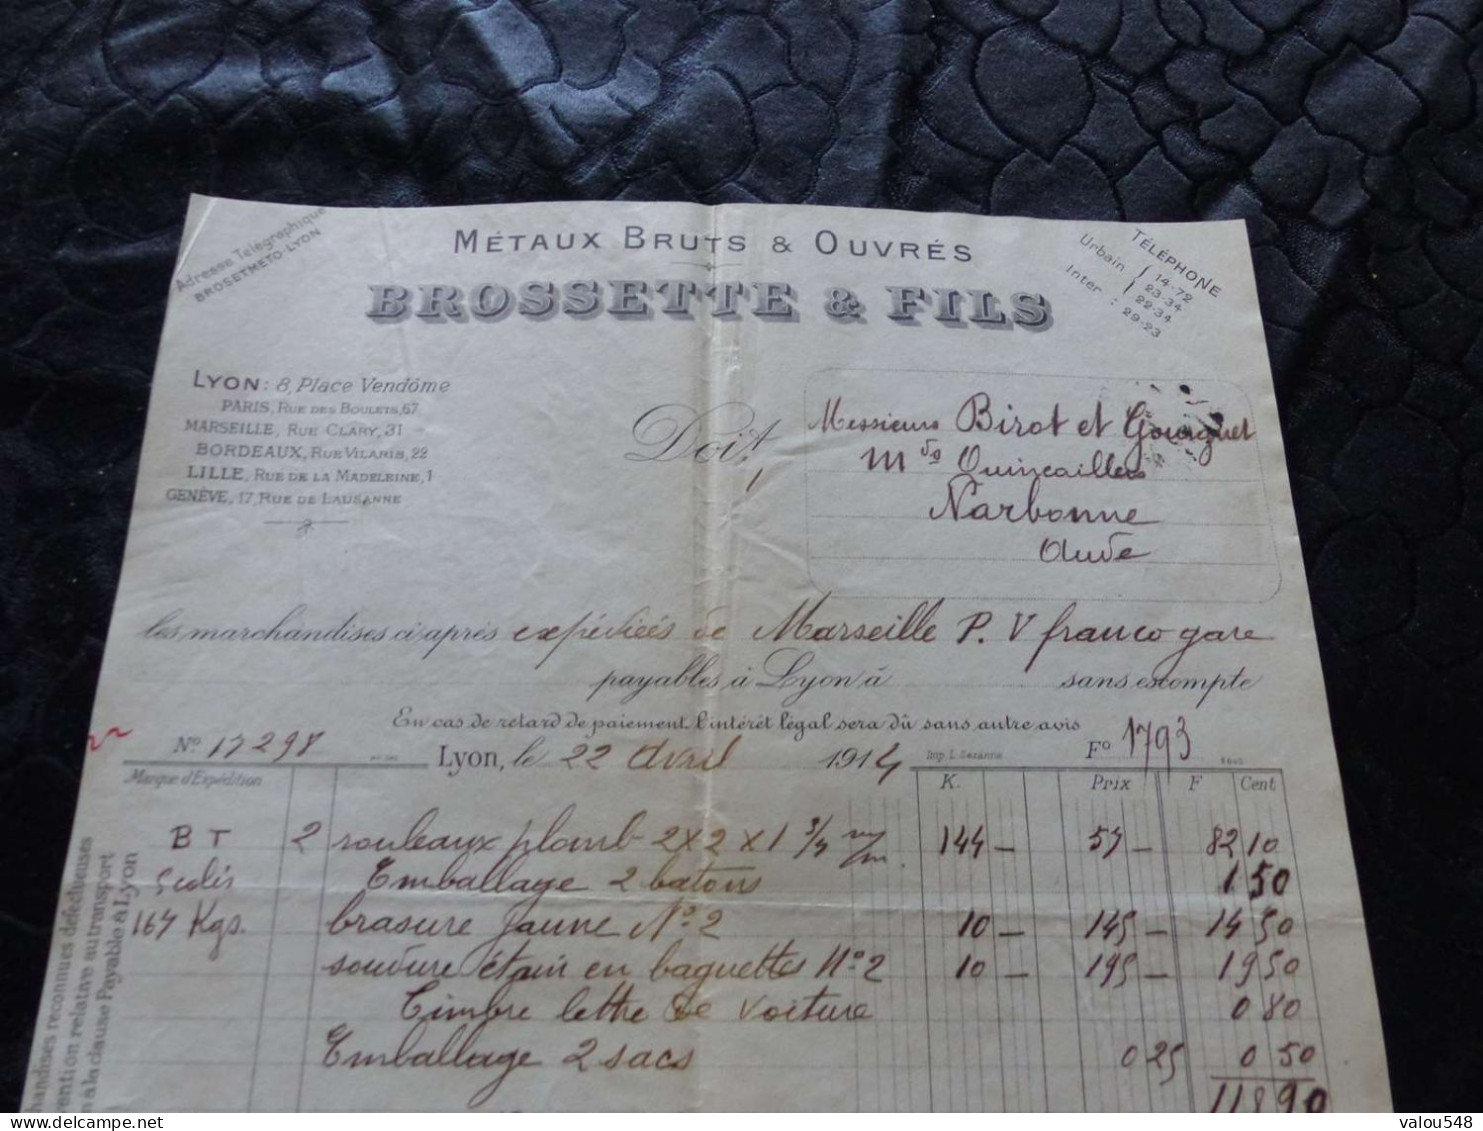 Adresse Télégraphique
BROSETMETO-LYON
MÉTAUX BRUTS & OUVRÉS
BROSSETTE & FILS
TÉLÉPHONE
Urbain { 14-72
23-34
Inter : 22-34
29-23
LYON: 8, Place Vendôme
PARIS, RUE DES BOULETS, 67
MARSEILLE, RUE CLARY, 31
BORDEAUX, RUE VILARIS, 22
LILLE, RUE DE LA MADELEINE, 1
GENÈVE, 17, RUE DE LAUSANNE
Doit,
Messieurs Birot et Gourguet
Mds Quincaillers
Narbonne
Aude
les marchandises ci-après expédiées de Marseille P. V franco gare
payables à Lyon à sans escompte
En cas de retard de paiement, l'intérêt légal sera dû sans autre avis
No 17298 Lyon, le 22 avril 1914 Imp. L. Sezanne Fo 1793
Marque d'Expédition K. Prix F Cent
B T 2 rouleaux plomb 2 x 2 x 1 3/4 m/m. 144 - 57 - 82 10
Emballage 2 batons 1 50
164 Kgs. brasure jaune No 2 10 - 145 - 14 50
soudure étain en baguettes No 2 10 - 195 - 19 50
Timbre lettre de voiture 0 80
Emballage 2 sacs 0 25 0 50
118 90
handises reconnues défectueuses
vention relative au transport
n à la clause Payable à Lyon
valou548